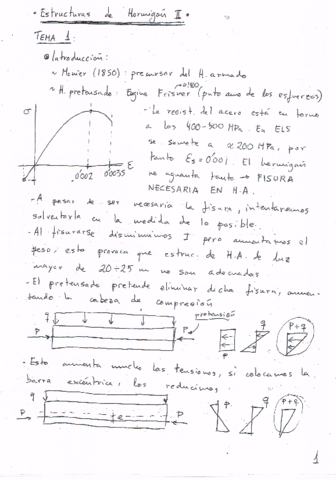 • Estructuras de Hormigón II •
TEMA 1:
Introducción:
~ Monier (1850): precursor del H. armado
~1900
~ H. pretensado: Eugine (puto amo de los esfuerzos)
- La resist. del acero está en torno
a los 400-500 MPa. En ELS
se somete a ≈ 200 MPa, por
tanto Es = 0'001. El hormigón
no aguanta tanto → FISURA
NECESARIA EN H.A.
σ
ε
0'002
0'0035
- A pesar de ser necesaria la fisura, intentaremos
solventarla en la medida de lo posible.
- Al fisurarse disminuimos I pero aumentamos el
peso, esto provoca que estruc. de H.A. de luz
mayor de 20÷25 m no son adecuadas.
- El pretensado pretende eliminar dicha fisura, aumen-
tando la cabeza de compresión
q
pretensión
P
P
P
q
P+q
- Esto aumenta mucho las tensiones, si colocamos la
barra excéntrica, las reducimos.
q
P
e
P
P
q
P+q
1